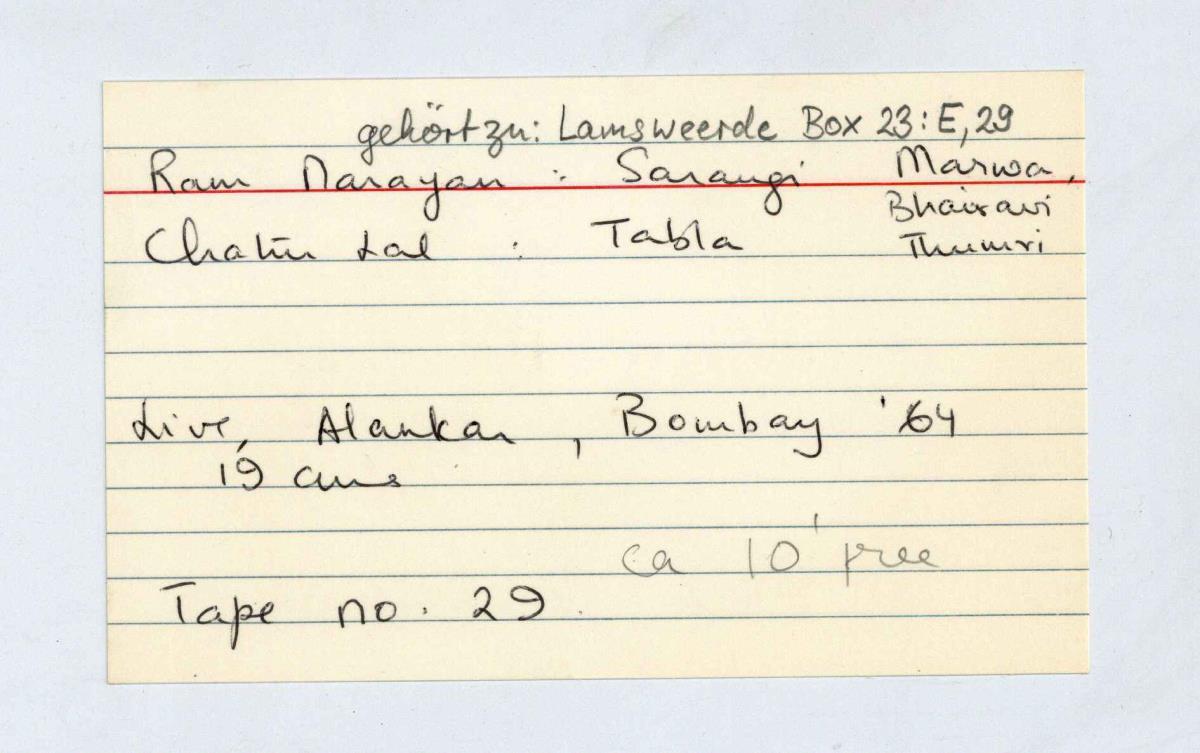 gehört zu: Lamsweerde Box 23: E, 29
Ram Narayan : Sarangi Marwa,
Bhairavi
Chatur Lal : Tabla Thumri
Live, Alankar, Bombay '64
19 cms
ca 10' free
Tape no. 29